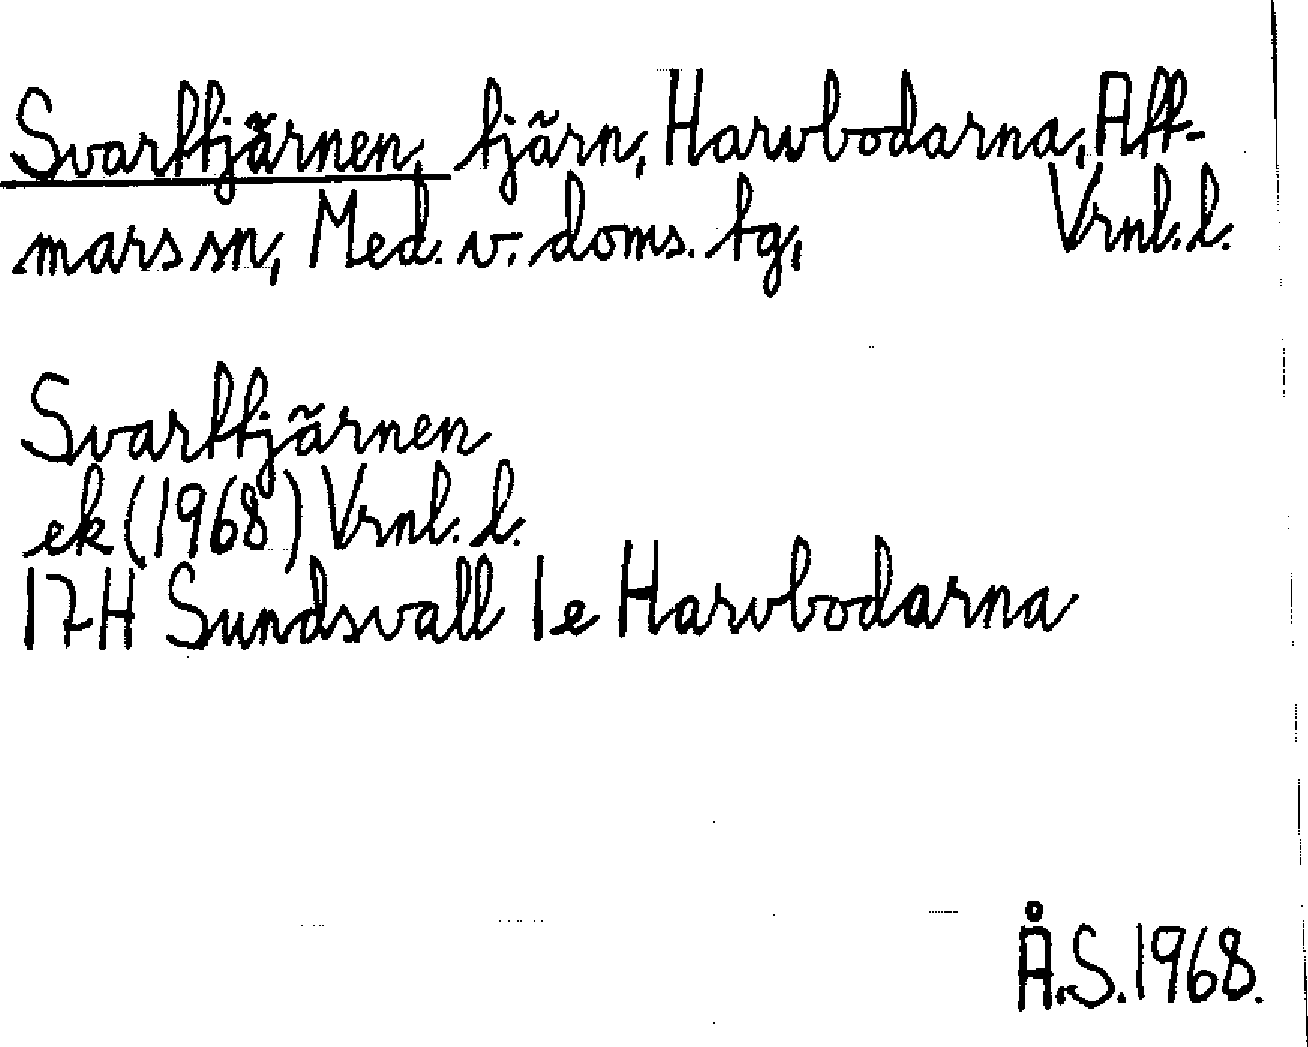 Svarttjärnen, tjärn, Harvbodarna, Att-
mars sn, Med. v. doms. tg, Vrnl. l.
Svarttjärnen
ek (1968) Vrnl. l.
17H Sundsvall 1e Harvbodarna
Å.S. 1968.